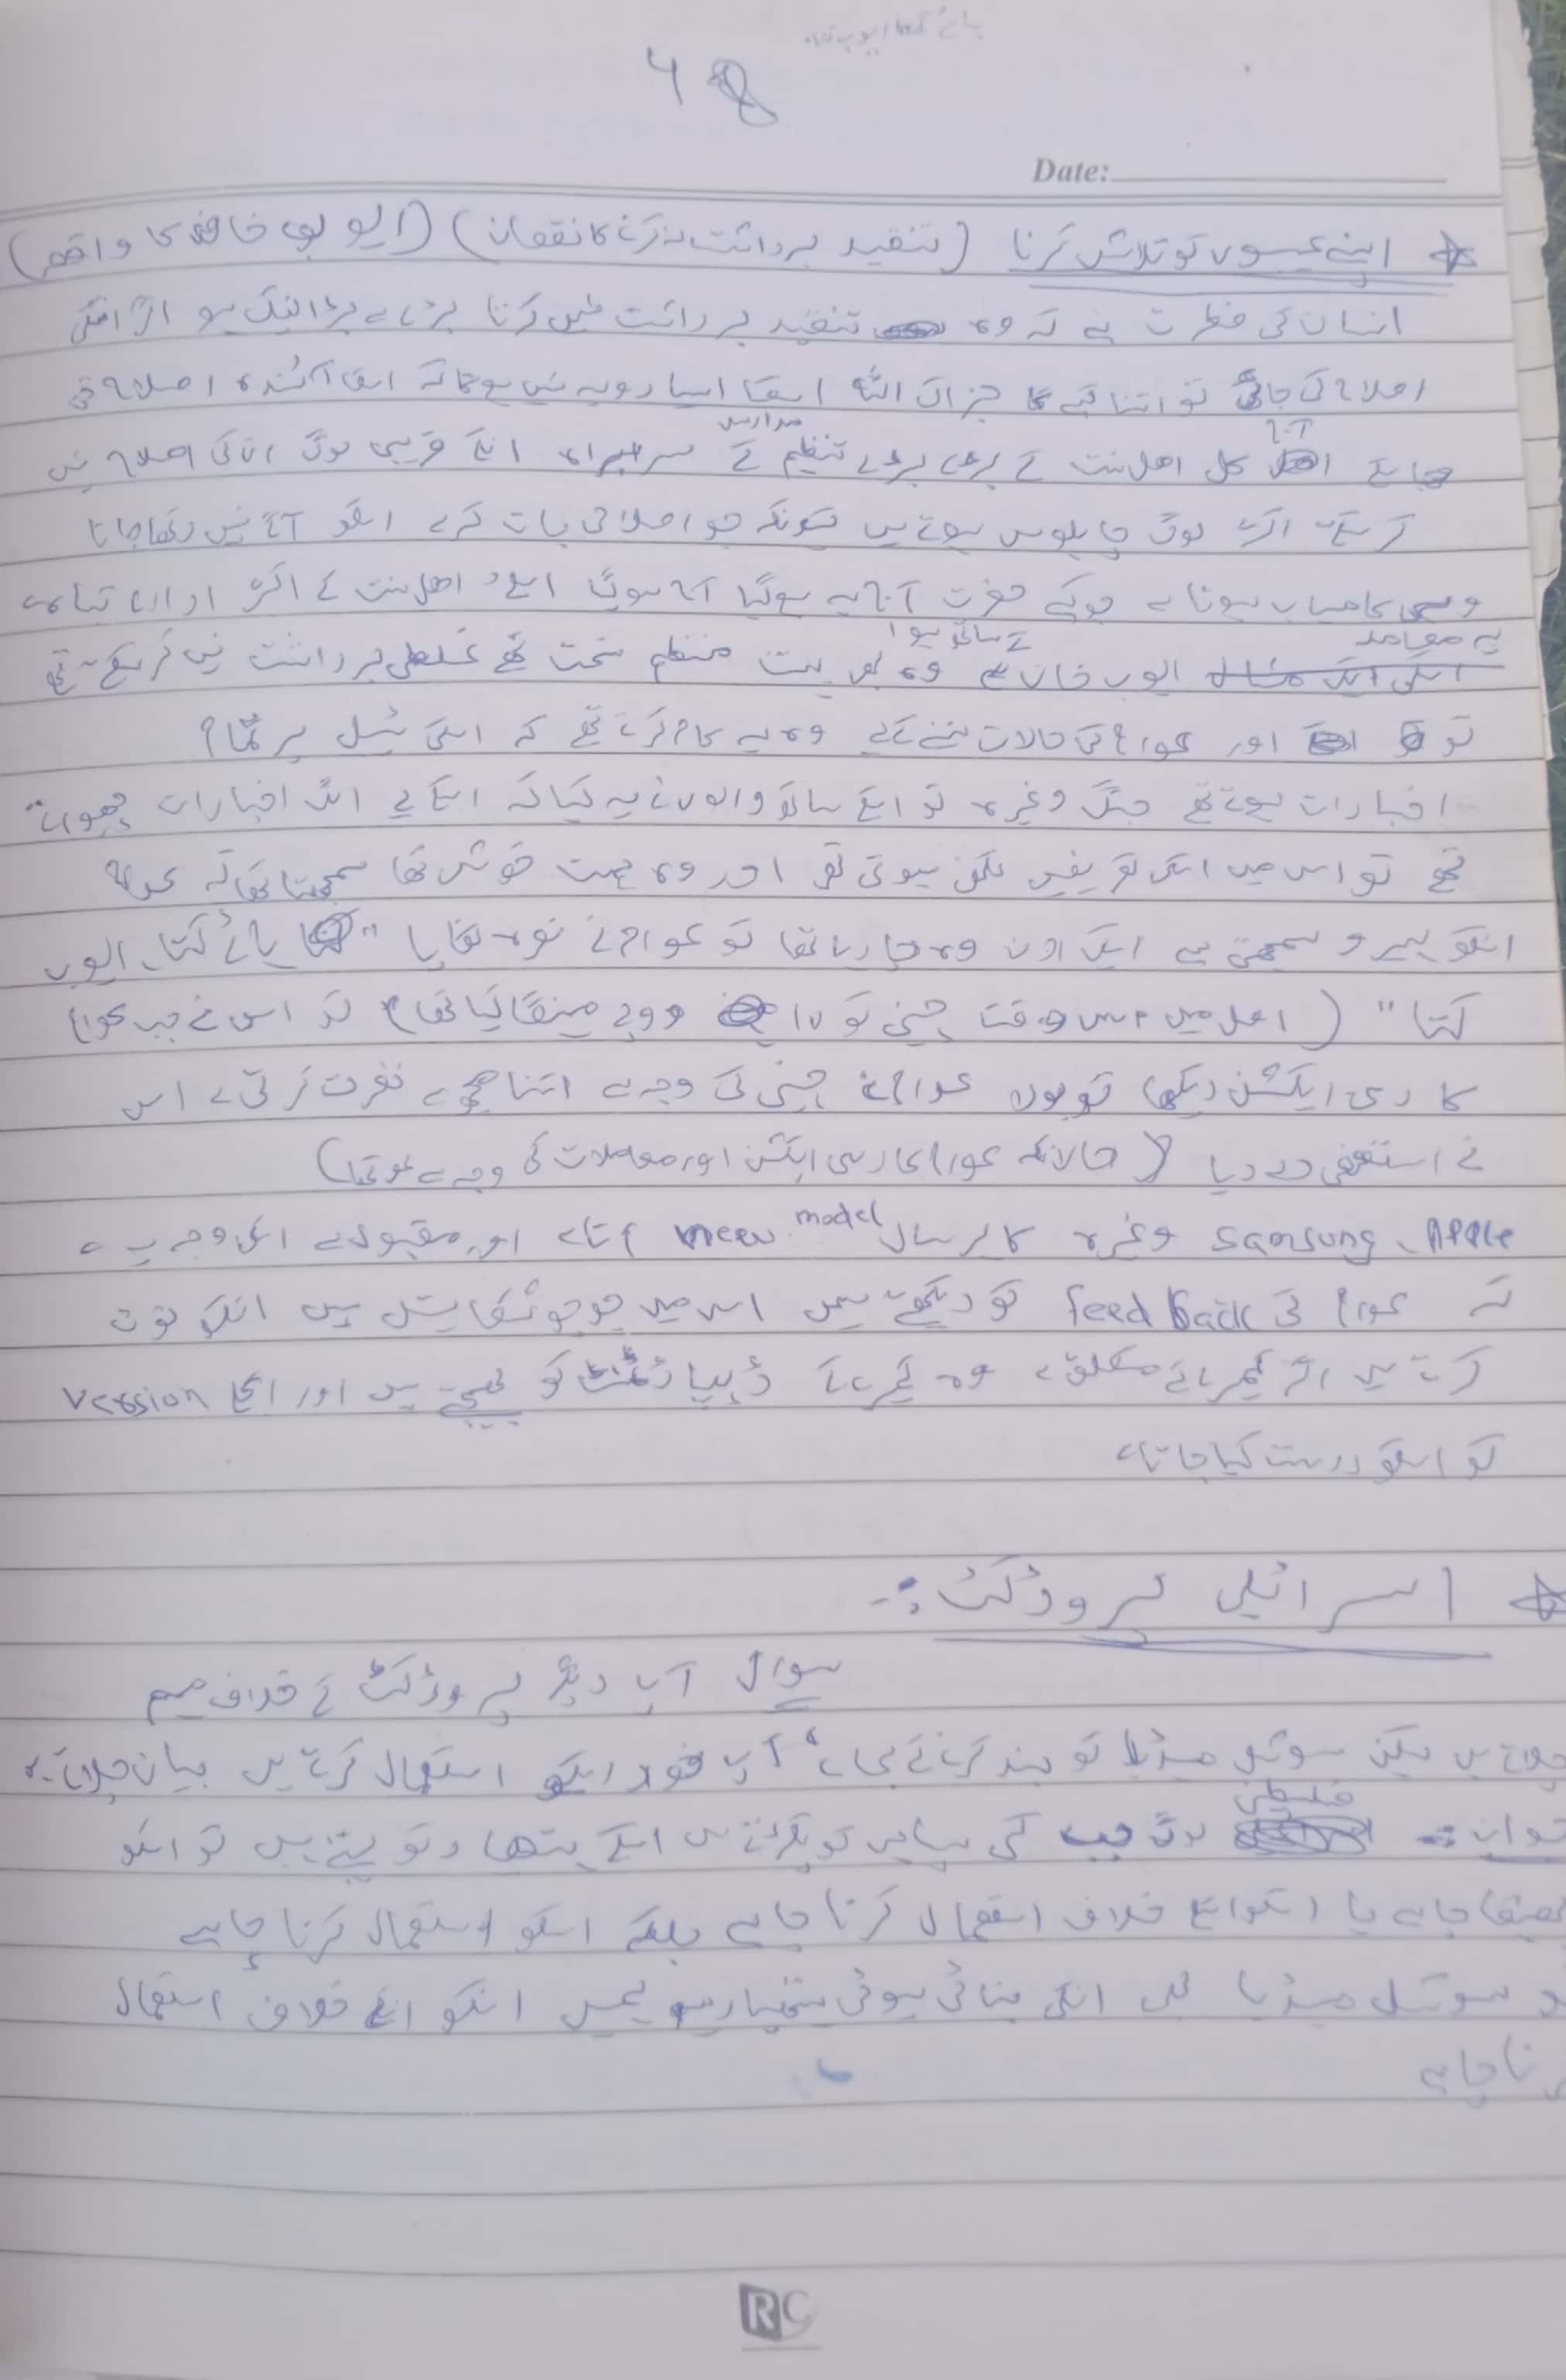 48
Date:
اپنے عیبوں کو تلاش کرنا (تنقید برداشت نہ کرنے کا نقصان) (ایوب خان کا واقعہ)
انسان کی فطرت ہے کہ وہ تنقید برداشت نہیں کرتا بڑے سے بڑا نیک ہو اگر اسکی
اصلاح کی جائے تو اتنا کہے گا جزاک اللہ اسکا ایسا رویہ نہیں ہوگا کہ اسکا آئندہ اصلاح کی
جائے آج کل اھلسنت کے بڑے بڑے تنظیم مدارس کے سربراہ انکے قریبی لوگ انکی اصلاح نہیں
کر سکتے اکثر لوگ چاپلوس ہوتے ہیں کیونکہ جو اصلاحی بات کرے اسکو آگے نہیں رکھا جاتا
وہی کامیاب ہوتا ہے جو کہے حضرت آپ یہ ہوگیا آپ ہوگیا اسلئے اھلسنت کے اکثر ادارے تباہ ہے
یہ معاملہ ایوب خان کے ساتھ ہوا وہ بہت منظم سخت تھے غلطی برداشت نہیں کر سکتے تھے
تو اور عوام کی حالات سننے کے لیے وہ یہ کام کرتے تھے کہ اسکی ٹیبل پر تمام
اخبارات ہوتے تھے جنگ وغیرہ تو اسکے ساتھ والوں نے یہ کیا کہ اسکے لیے الگ اخبارات چھپواتے
تھے تو اس میں اسکی تعریفیں لکھی ہوتی تھی اور وہ بہت خوش تھا سمجھتا تھا کہ عوام
اسکو ہیرو سمجھتی ہے ایک دن وہ جا رہا تھا تو عوام نے نعرہ لگایا "ہائے کتا ایوب
کتا" (اصل میں اس وقت چینی کو مہنگا کیا تھا) تو اس نے جب عوام
کا ری ایکشن دیکھا تو بولا عوام چینی کی وجہ سے اتنا مجھ سے نفرت کرتی ہے اس
نے استعفی دے دیا (حالانکہ عوام کا ری ایکشن اور معاملات کی وجہ سے ہوتا)
Apple، Samsung وغیرہ کا ہر سال new model آتا ہے اور مقبول ہے اسکی وجہ یہ ہے
کہ عوام کی feed back کو دیکھتے ہیں اس میں جو جو شکایتیں ہیں انکو نوٹ
کرتے ہیں اگر کیمرہ کے متعلق ہے وہ کیمرے کے ڈپیارٹمنٹ کو بھیجتے ہیں اور اگلا version
کو اسکو درست کیا جاتا ہے
اسرائیلی پروڈکٹ :-
سوال آپ دیگر پروڈکٹ کے خلاف مہم
چلاتے ہیں لیکن سوشل میڈیا کو بند کرنے کے بجائے آپ خود اسکو استعمال کرتے ہیں بیان چلاتے ہے
جواب :- فلسطین لوگ جب کسی سپاہی کو پکڑتے ہیں اسکے ہتھیار کو لیتے ہیں تو اسکو
پھینکنا چاہیے یا اسکو انکے خلاف استعمال کرنا چاہیے بلکہ اسکو استعمال کرنا چاہیے
سوشل میڈیا بھی انکی بنائی ہوئی ہتھیار ہے ہمیں انکو انکے خلاف استعمال
کرنا چاہیے
RC